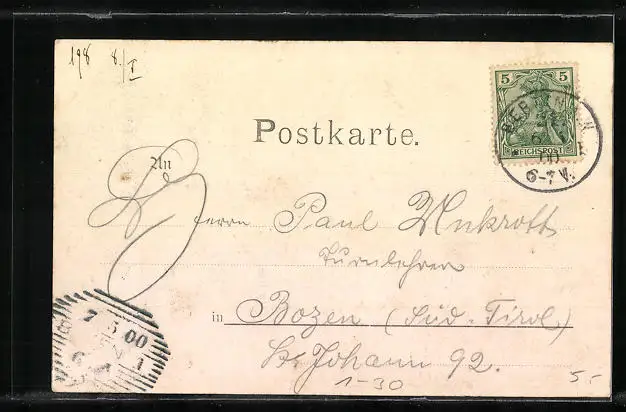 198 8./I
5 5
REICHSPOST
00
6-7 V.
Postkarte.
An
Herrn Paul Mukrott
Turnlehrer
in Bozen (Süd-Tirol)
St. Johann 92.
7 5 00
1-30
5.-